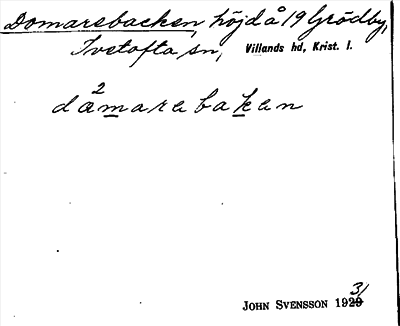 Domaresbacken, höjd å 19 Grödby,
Ivetofta sn, Villands hd, Krist. l.
2
dåmarebaken
JOHN SVENSSON 1931